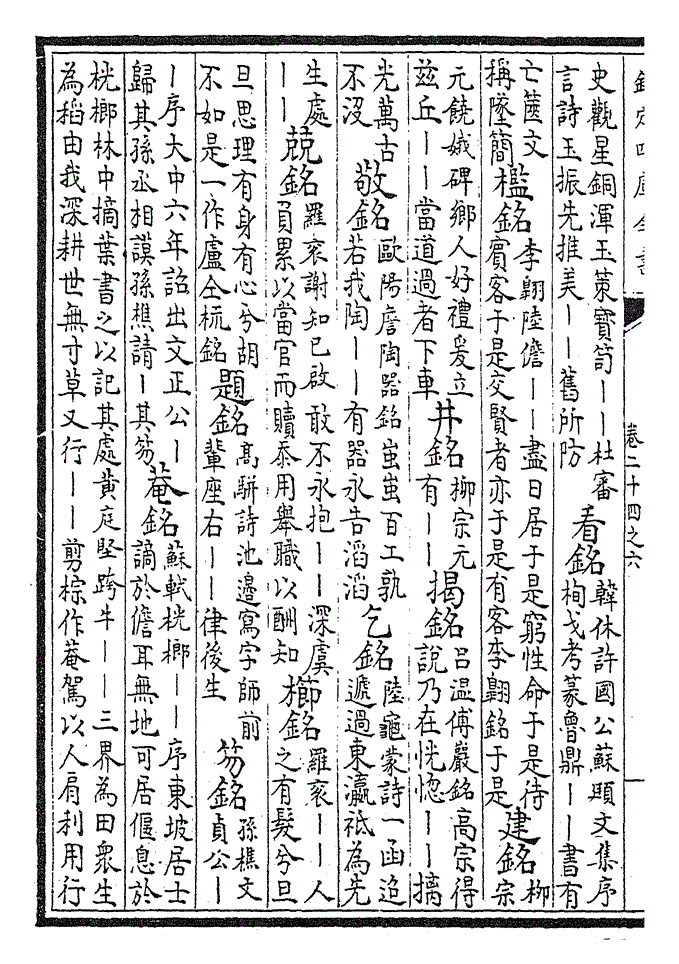 欽定四庫全書
卷二十四之六
史觀星銅渾玉策寶笥——杜審
言詩玉振先推美——舊所防
看銘
韓休許國公蘇頲文集序
栒戈考篆魯鼎——書有
亡篋文
稱墜簡
檻銘
李翺陸儋——盡日居于是窮性命于是待
賓客于是交賢者亦于是有客李翺銘于是
建銘
柳
宗
元饒娥碑鄉人好禮爰立
兹丘——當道過者下車
井銘
柳宗元
有——
揭銘
吕温傅巖銘高宗得
說乃在恍惚——摛
光萬古
不没
敬銘
歐陽詹陶器銘蚩蚩百工孰
若我陶——有器永告滔滔
乞銘
陸龜蒙詩一函迢
遞過東瀛祇為先
生處
——
兢銘
羅衮謝知己啟敢不永抱——深虞
負累以當官而贖忝用舉職以酬知
櫛銘
羅衮——人
之有髮兮旦
旦思理有身有心兮胡
不如是一作盧仝梳銘
題銘
高駢詩池邊寫字師前
輩座右——律後生
笏銘
孫樵文
貞公—
—序大中六年詔出文正公—
歸其孫丞相謨孫樵請—其笏
菴銘
蘇軾桄榔——序東坡居士
謫於儋耳無地可居偃息於
桄榔林中摘葉書之以記其處黄庭堅跨牛——三界為田衆生
為稻由我深耕世無寸草又行——剪棕作菴駕以人肩利用行